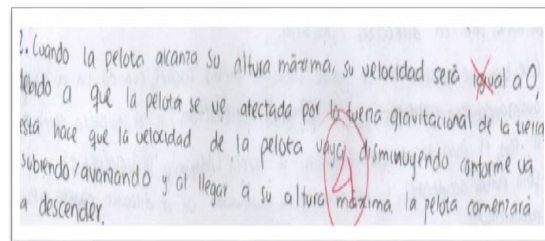 2. Cuando la pelota alcanza su altura máxima, su velocidad será igual a 0,
debido a que la pelota se ve afectada por la fuerza gravitacional de la tierra
esta hace que la velocidad de la pelota vaya disminuyendo conforme va
subiendo/avanzando y al llegar a su altura máxima la pelota comenzará
a descender.